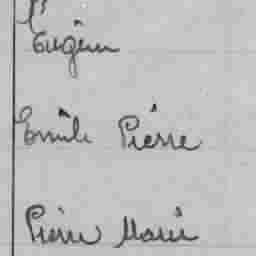 Eugène
Emile Pierre
Pierre Marie